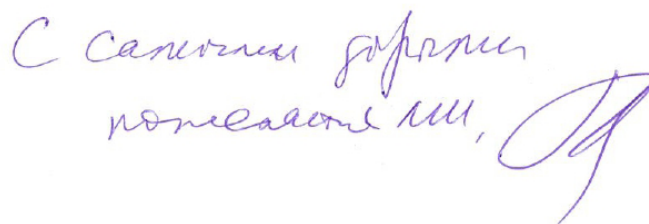 С самыми добрыми
пожеланиями,